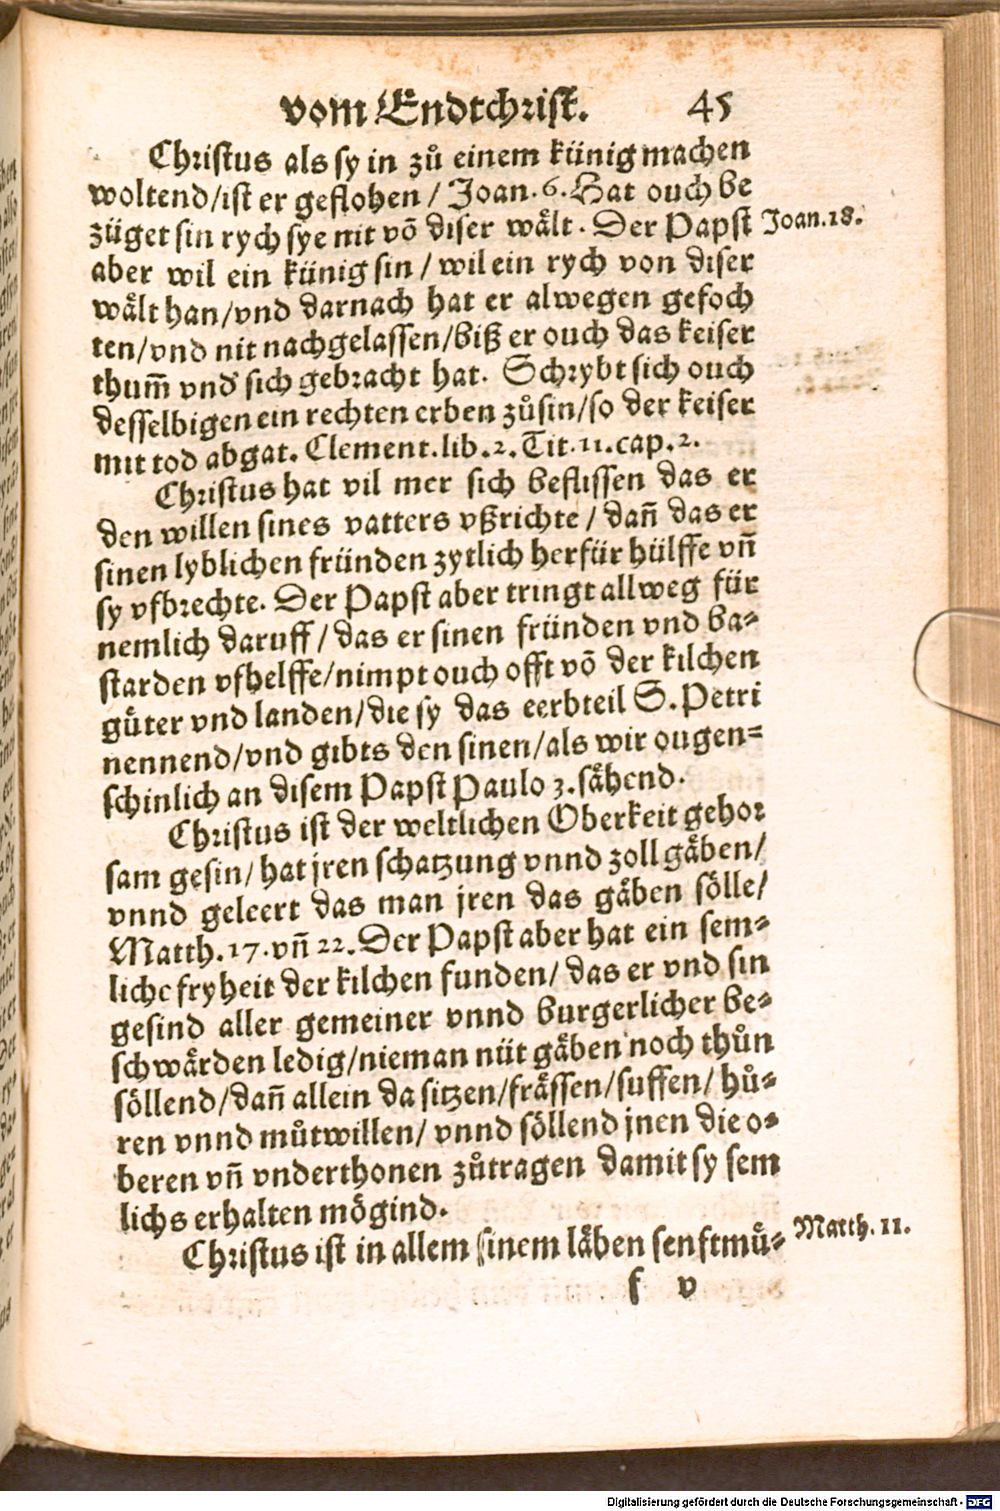 vom Endtchrist. 45
Christus als sy in zů einem künig machen
woltend/ist er geflohen/ Joan. 6. Hat ouch be
züget sin rych sye nit võ diser wält. Der Papst Joan. 18.
aber wil ein künig sin/ wil ein rych von diser
wält han/vnd darnach hat er alwegen gefoch
ten/vnd nit nachgelassen/biß er ouch das keiser
thum̃ vnd sich gebracht hat. Schrybt sich ouch
desselbigen ein rechten erben zů sin/so der keiser
mit tod abgat. Clement. lib. 2. Tit. 11. cap. 2.
Christus hat vil mer sich beflissen das er
den willen sines vatters vßrichte/ dañ das er
sinen lyblichen fründen zytlich herfür hülffe vñ
sy vfbrechte. Der Papst aber tringt allweg für
nemlich daruff/ das er sinen fründen vnd ba-
starden vfhelffe/nimpt ouch offt võ der kilchen
güter vnd landen/die sy das eerbteil S. Petri
nennend/vnd gibts den sinen/als wir ougen-
schinlich an disem Papst Paulo 3. sähend.
Christus ist der weltlichen Oberkeit gehor
sam gesin/ hat jren schatzung vnnd zoll gäben/
vnnd geleert das man jren das gäben sölle/
Matth. 17. vñ 22. Der Papst aber hat ein sem-
liche fryheit der kilchen funden/ das er vnd sin
gesind aller gemeiner vnnd burgerlicher be-
schwärden ledig/nieman nüt gäben noch thůn
söllend/dañ allein da sitzen/frässen/suffen/ hů-
ren vnnd můtwillen/ vnnd söllend jnen die o-
beren vñ vnderthonen zůtragen damit sy sem
lichs erhalten mögind.
Christus ist in allem sinem läben senftmů- Matth. 11.
f v
Digitalisierung gefördert durch die Deutsche Forschungsgemeinschaft - DFG